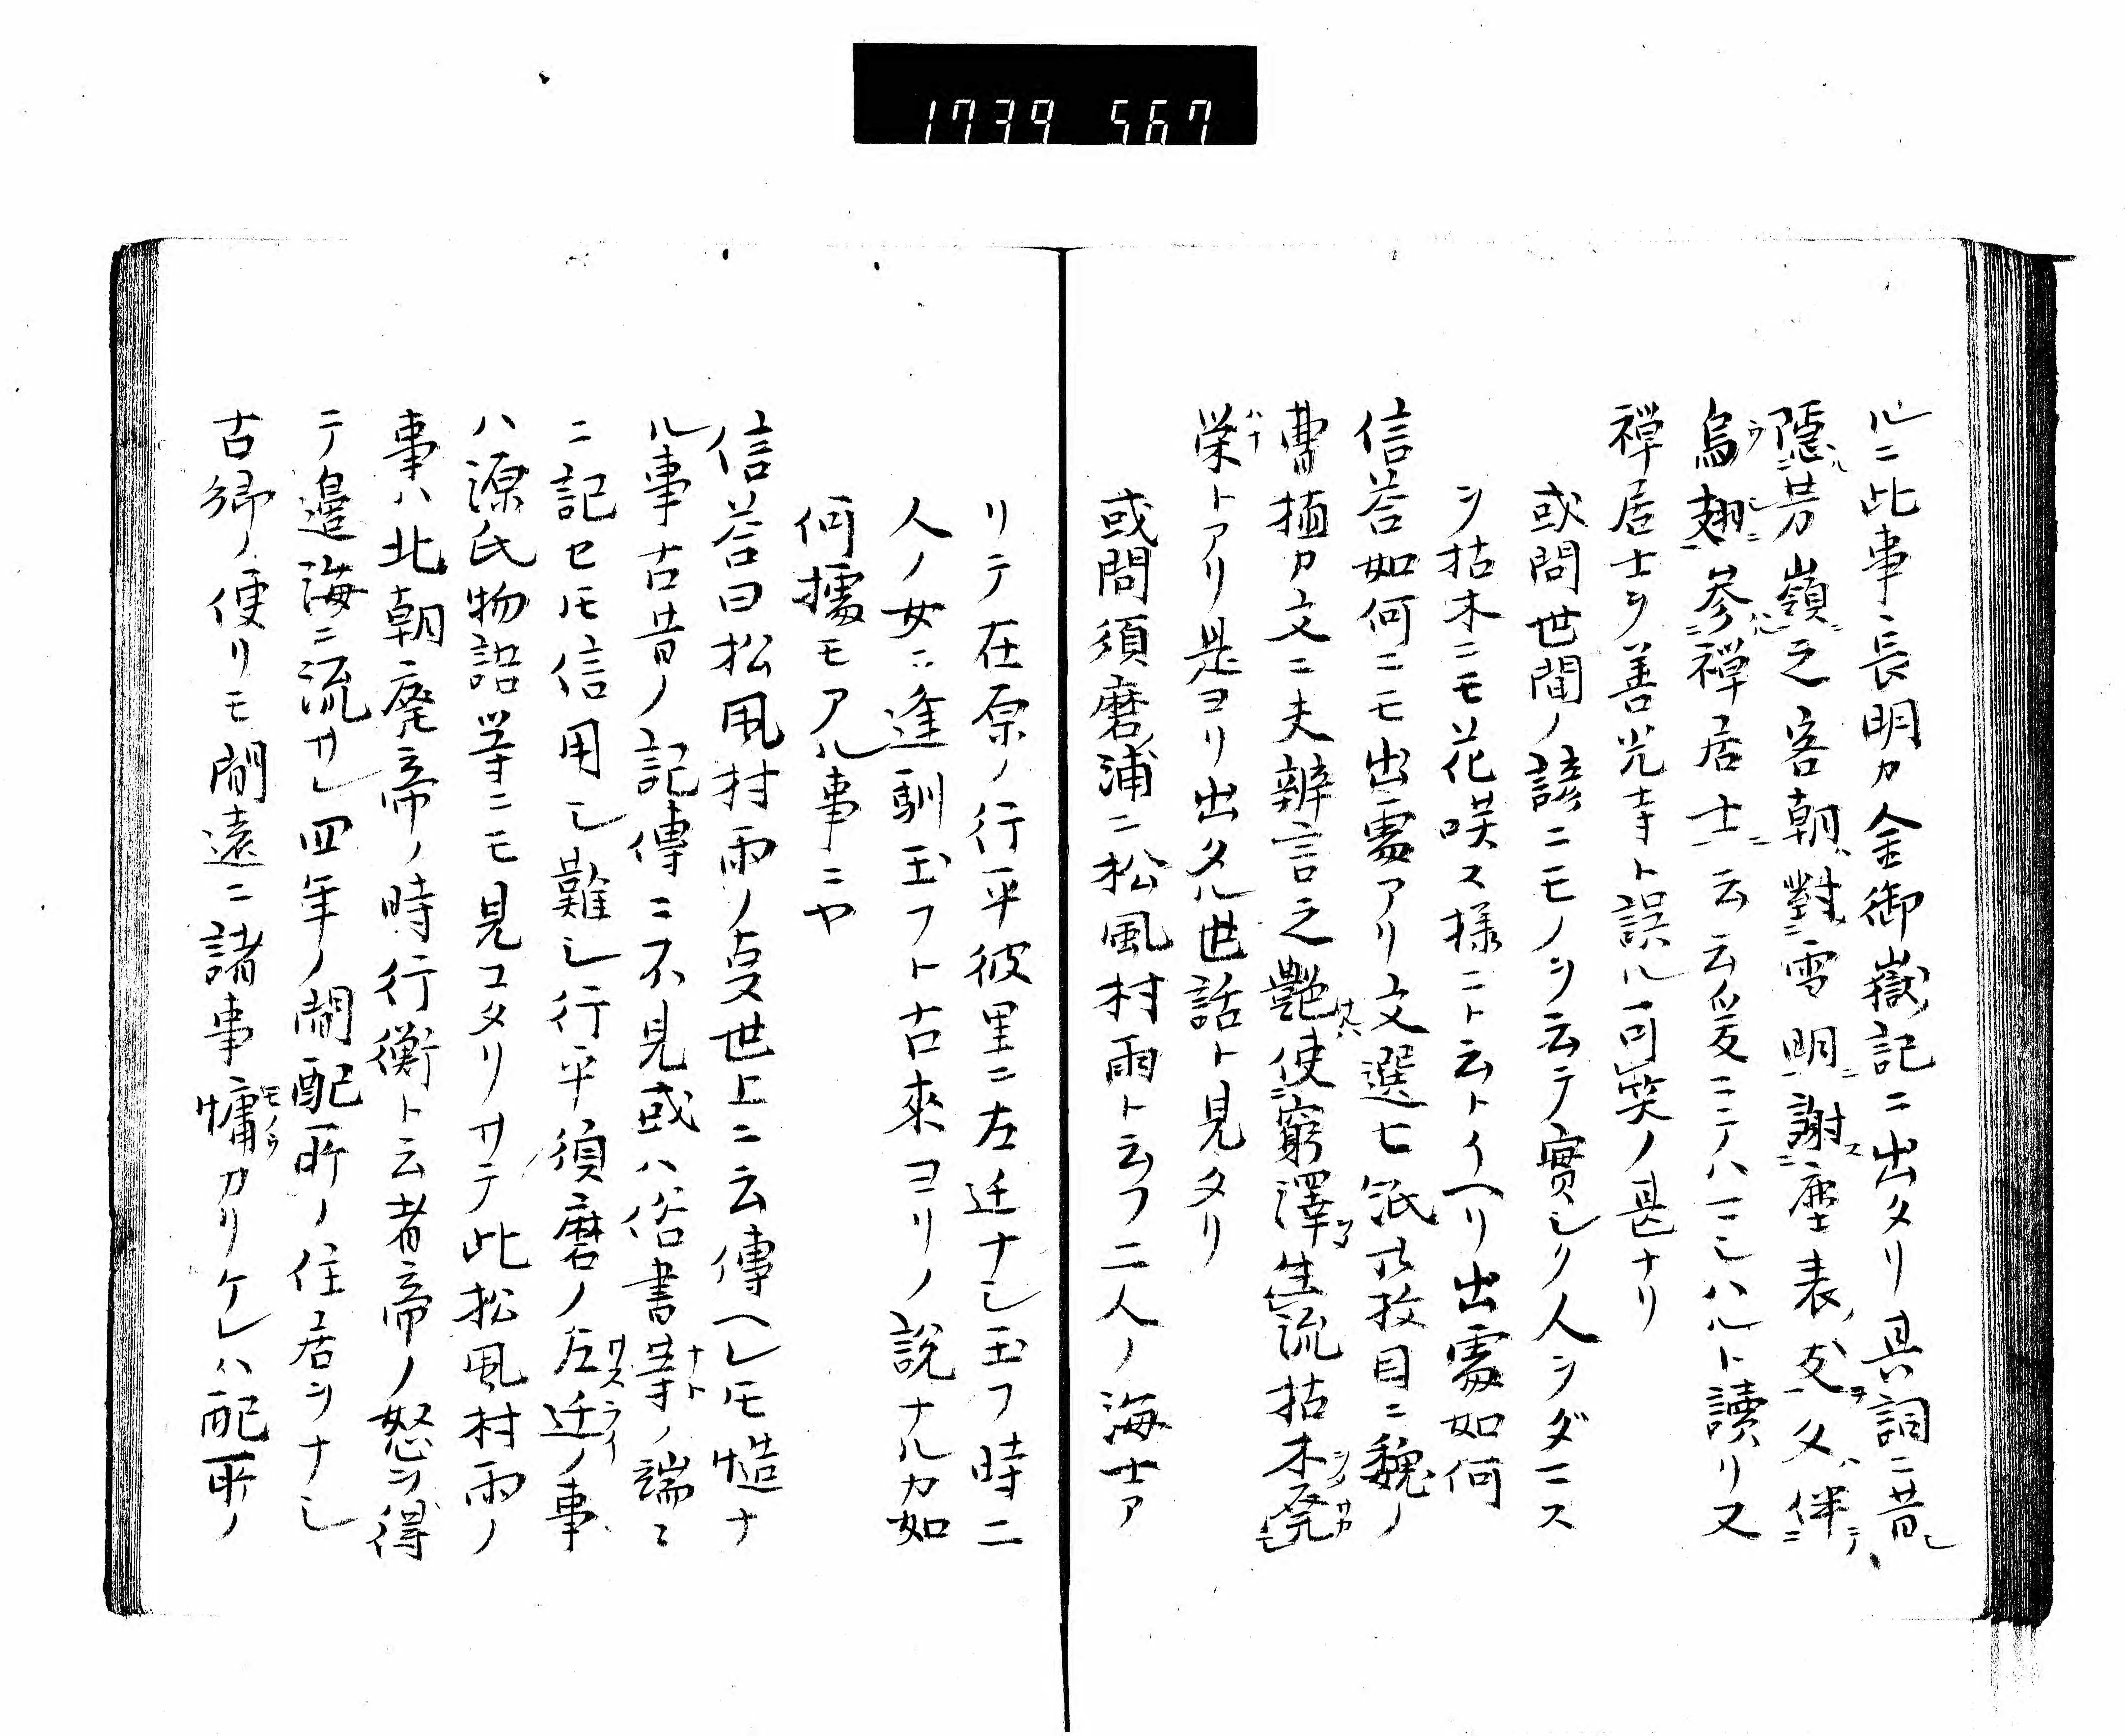 1739 567
ルニ此事長明カ金御嶽記ニ出タリ其詞ニ昔シ
隠芳嶺之客朝對雪明謝塵表友父伴
烏翅参禅居士云云爰ニテハ一ニシハルト讀リ又
禅居士ヲ善光寺ト誤ル可笑ノ甚ナリ
或問世間ノ諺ニモノヲ云テ實シク人ヲダニス
ヲ枯木ニモ花咲ス様ニト云トイヘリ出處如何
信答如何ニモ出處アリ文選七 枚目ニ魏ノ
曹植カ文ニ夫辨言之艶使窮澤生流枯木発
栄トアリ是ヨリ出タル世話ト見タリ
或問須磨浦ニ松風村雨ト云フ二人ノ海士ア
リテ在原ノ行平彼里ニ左迁ナシ玉フ時ニ
人ノ女ニ逢馴玉フト古來ヨリノ説ナルカ如
何據モアル事ニヤ
信答曰松風村雨ノ叓世上ニ云傳ヘレ𪜈慥ナ
ル事古昔ノ記傳ニ不見或ハ俗書等ノ端ニ
ニ記セ𪜈信用シ難シ行平須磨ノ左迁ノ事
ハ源氏物語等ニモ見コタリサテ此松風村雨ノ
事ハ北朝廃帝ノ時行衡ト云者帝ノ怒ヲ得
テ邊海ニ流サレ四年ノ間配所ノ住居ヲナシ
古郷ノ便リモ間遠ニ諸事慵カリケレハ配所ノ